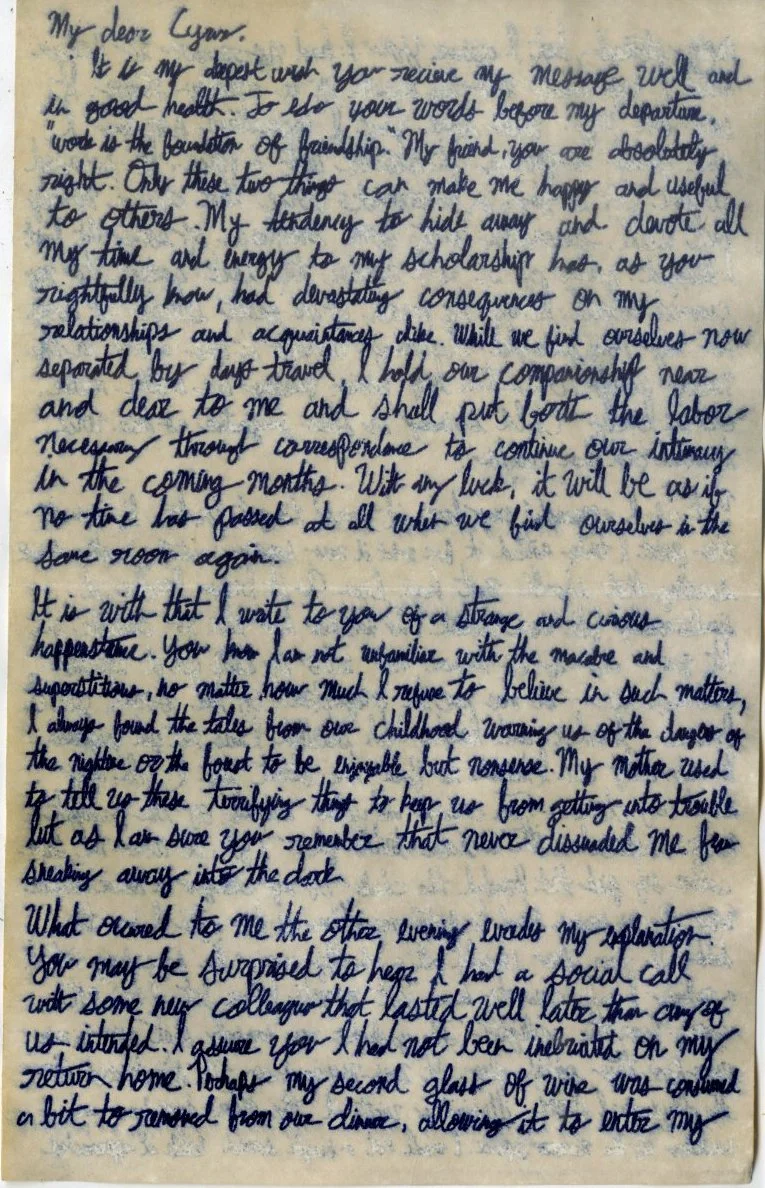 My dear Cyrus.
It is my deepest wish you recieve my message well and
in good health. To echo your words before my departure,
"work is the foundation of friendship." My friend, you are absolutely
right. Only these two things can make me happy and useful
to others. My tendency to hide away and devote all
my time and energy to my scholarship has, as you
rightfully know, had devastating consequences on my
relationships and acquaintances alike. While we find ourselves now
separated by days travel, I hold our companionship near
and dear to me and shall put forth the labor
necessary through correspondence to continue our intimacy
in the coming months. With any luck, it will be as if
no time has passed at all when we find ourselves in the
same room again.
It is with that I write to you of a strange and curious
happenstance. You know I am not unfamiliar with the macabre and
superstitious, no matter how much I refuse to believe in such matters,
I always found the tales from our childhood warning us of the dangers of
the nightime or the forest to be enjoyable but nonsense. My mother used
to tell us these terrifying things to keep us from getting into trouble
but as I am sure you remember that never dissuaded me from
sneaking away into the dark
What occured to me the other evening evades my explanation.
You may be surprised to hear I had a social call
with some new colleagues that lasted well later than any of
us intended. I assure you I had not been inebriated on my
return home. Perhaps my second glass of wine was consumed
a bit to removed from our dinner, allowing it to enter my